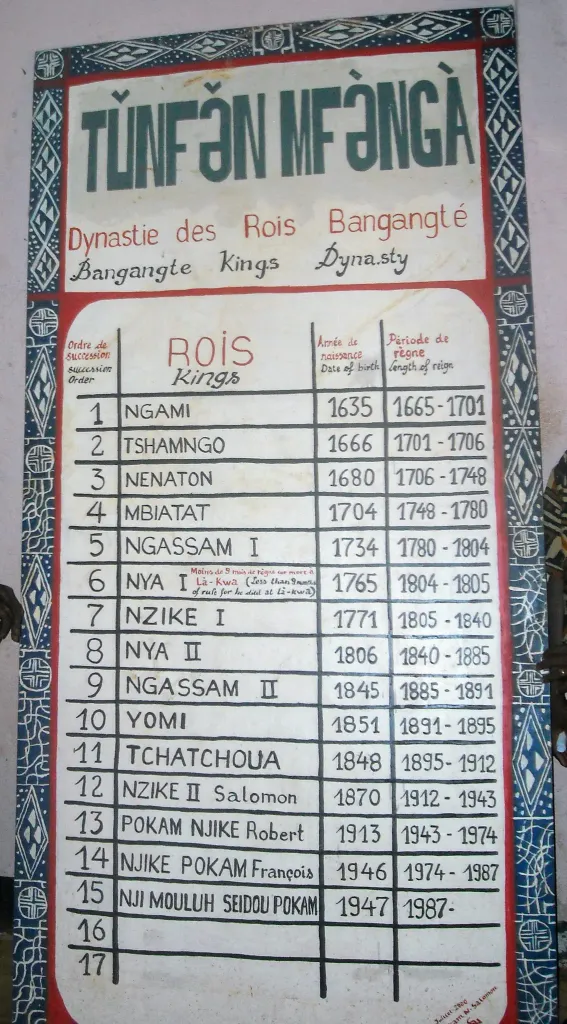 TǓNFƏ̌N MFƏ̀NGÀ
Dynastie des Rois Bangangté
Bangangte Kings Dyna.sty
Ordre de succession succession Order ROIS Kings Année de naissance Date of birth Période de règne Length of reign
1 NGAMI 1635 1665-1701
2 TSHAMNGO 1666 1701-1706
3 NENATON 1680 1706-1748
4 MBIATAT 1704 1748-1780
5 NGASSAM I 1734 1780-1804
6 NYA I Moins de 9 mois de règne car mort à Là-Kwa (Less than 9 months of rule for he died at Là-kwà) 1765 1804-1805
7 NZIKE I 1771 1805-1840
8 NYA II 1806 1840-1885
9 NGASSAM II 1845 1885-1891
10 YOMI 1851 1891-1895
11 TCHATCHOUA 1848 1895-1912
12 NZIKE II Salomon 1870 1912-1943
13 POKAM NJIKE Robert 1913 1943-1974
14 NJIKE POKAM François 1946 1974-1987
15 NJI MOULUH SEIDOU POKAM 1947 1987-
16
17
Juillet 2000
N. Salomon